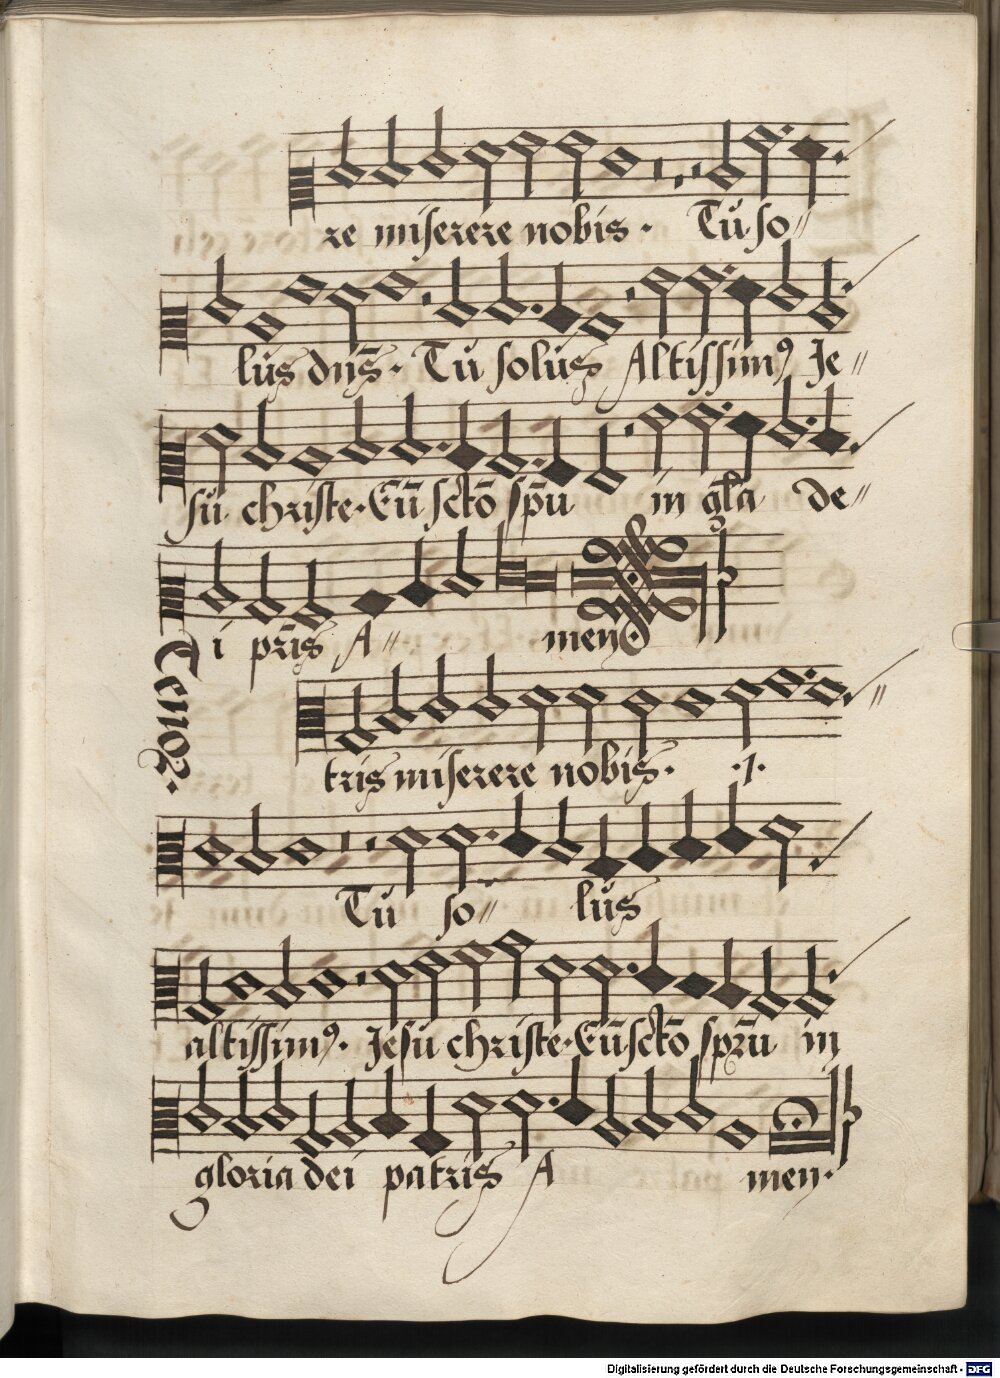 re miserere nobis · Tu so〃
lus dn̄s · Tu solus Altissimꝰ Je〃
su christe · Cū sctō spū in gl̄a de〃
i pr̄is A〃 men
Tenor ·
tris miserere nobis · ·1·
Tu so〃 lus
altissimꝰ · Jesu christe · Cū sctō spr̄u in
gloria dei patris A men ·
Digitalisierung gefördert durch die Deutsche Forschungsgemeinschaft - DFG